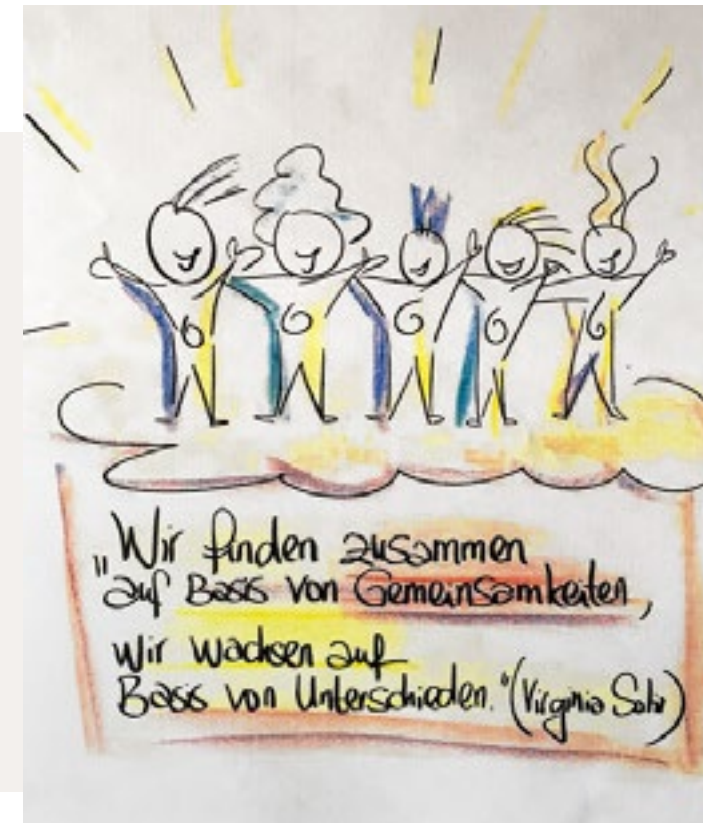 „Wir finden zusammen
auf Basis von Gemeinsamkeiten,
wir wachsen auf
Basis von Unterschieden." (Virginia Satir)